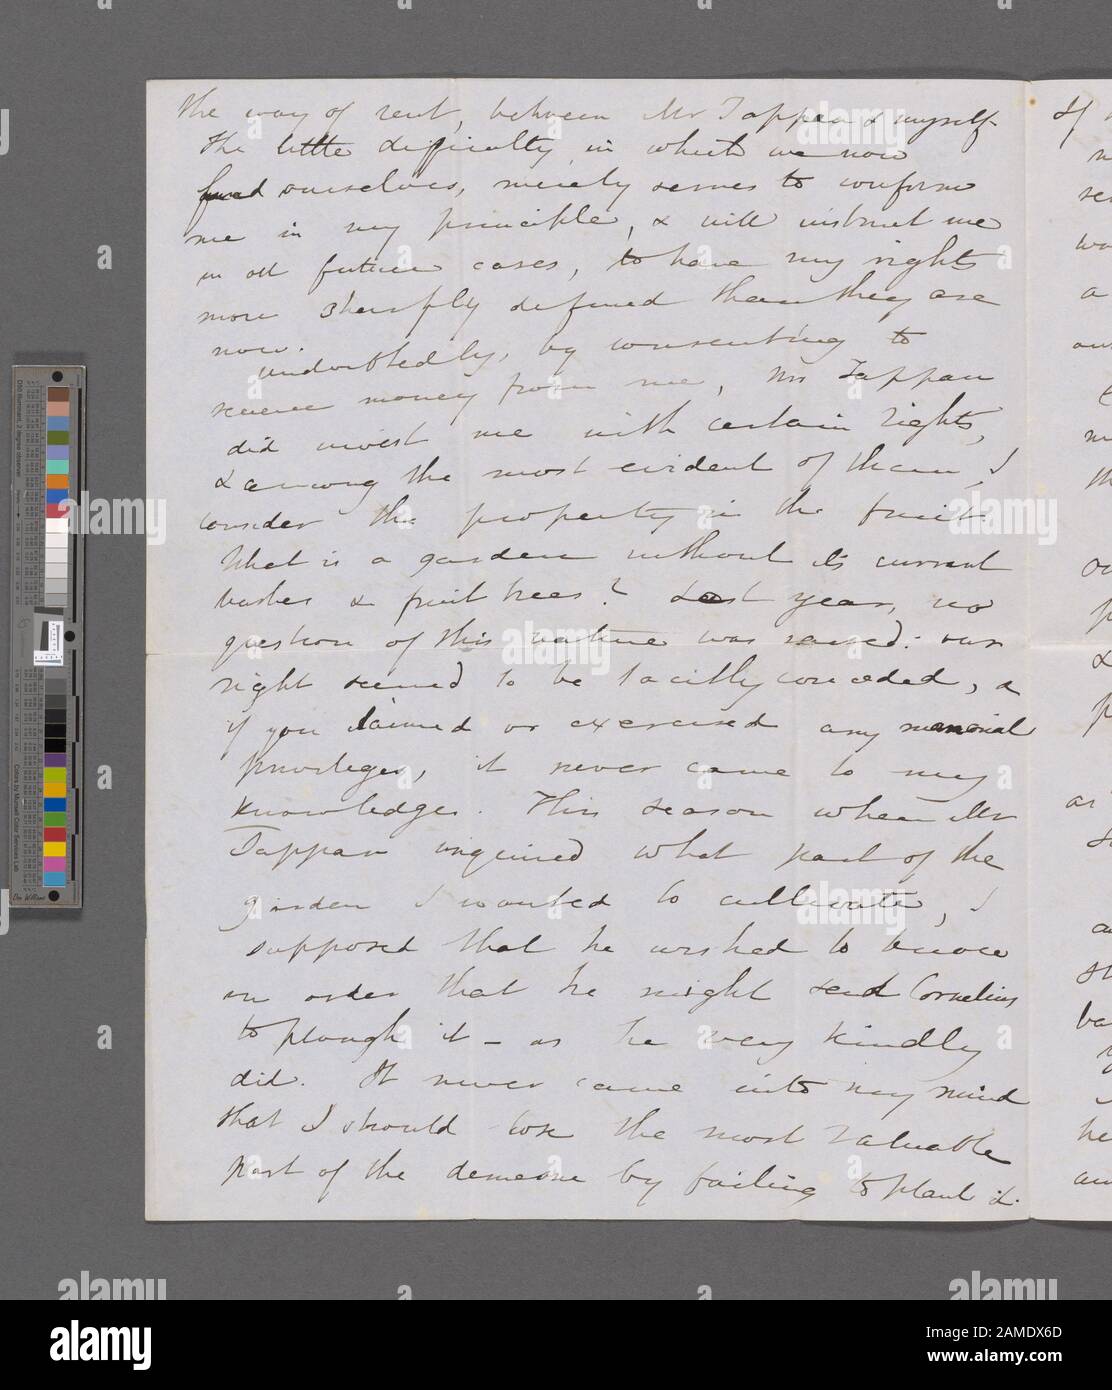 the way of rent, between Mr Tappan & myself. If
The little difficulty in which we now
find ourselves, merely serves to confirm
me in my principle, & will instruct me
in all future cases, to have my rights
more sharply defined than they are
now.
undoubtedly, by consenting to
receive money from me, Mr Tappan
did invest me with certain rights,
& among the most evident of them, I
consider the property in the fruit.
What is a garden without its currant
bushes & fruit trees? Last year, no
question of this nature was raised: our
right seemed to be tacitly conceded, &
if you claimed or exercised any manorial
privileges, it never came to my
knowledge. This season when Mr
Tappan inquired what part of the
garden I wanted to cultivate, I
supposed that he wished to know
in order that he might send Cornelius
to plough it – as he very kindly
did. It never came into my mind
that I should lose the most valuable
part of the demesne by failing to plant it.
alamy
Image ID: 2AMDX6D
www.alamy.com